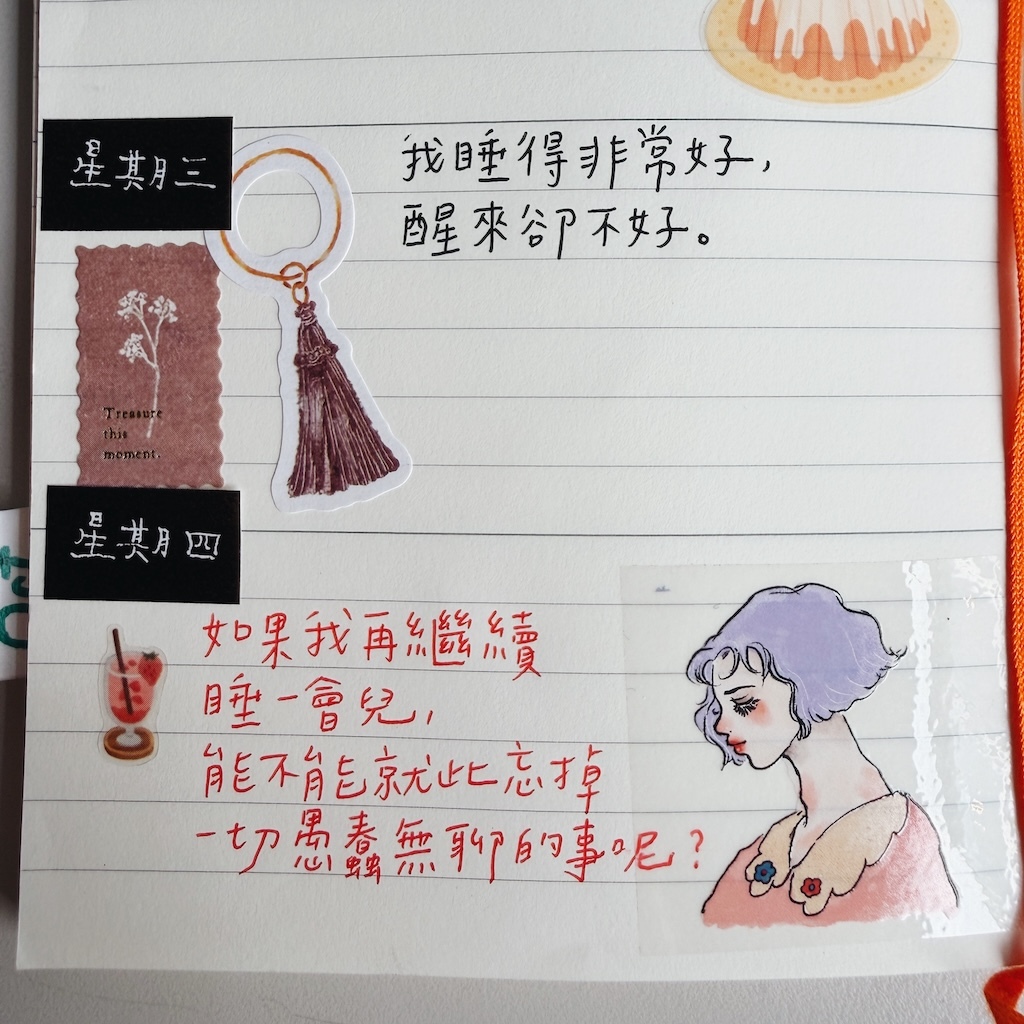 星期三
我睡得非常好，
醒來卻不好。
Treasure
this
moment.
星期四
如果我再繼續
睡一會兒，
能不能就此忘掉
一切愚蠢無聊的事呢？